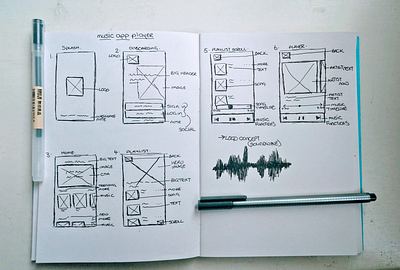 music app player
1.
SPLASH.
LOGO
2.
ONBOARDING.
LOGO
BIG HEADER
IMAGE
SIGN UP
LOG IN
SOCIAL
3.
HOME
BIG TEXT
IMAGE
CTA
MUSIC
MUSIC
4.
PLAYLIST.
BACK
IMAGE
BIG TEXT
MORE
SONG
TEXT
SCROLL
5.
PLAYLIST SCROLL.
BACK
MORE
TEXT
SONG
TIMELINE
MUSIC
FUNCTIONS
6.
PLAYER.
BACK
ARTIST TEXT
ARTIST
MUSIC
TIMELINE
MUSIC
FUNCTIONS
LOGO CONCEPT
(SOUNDWAVE)